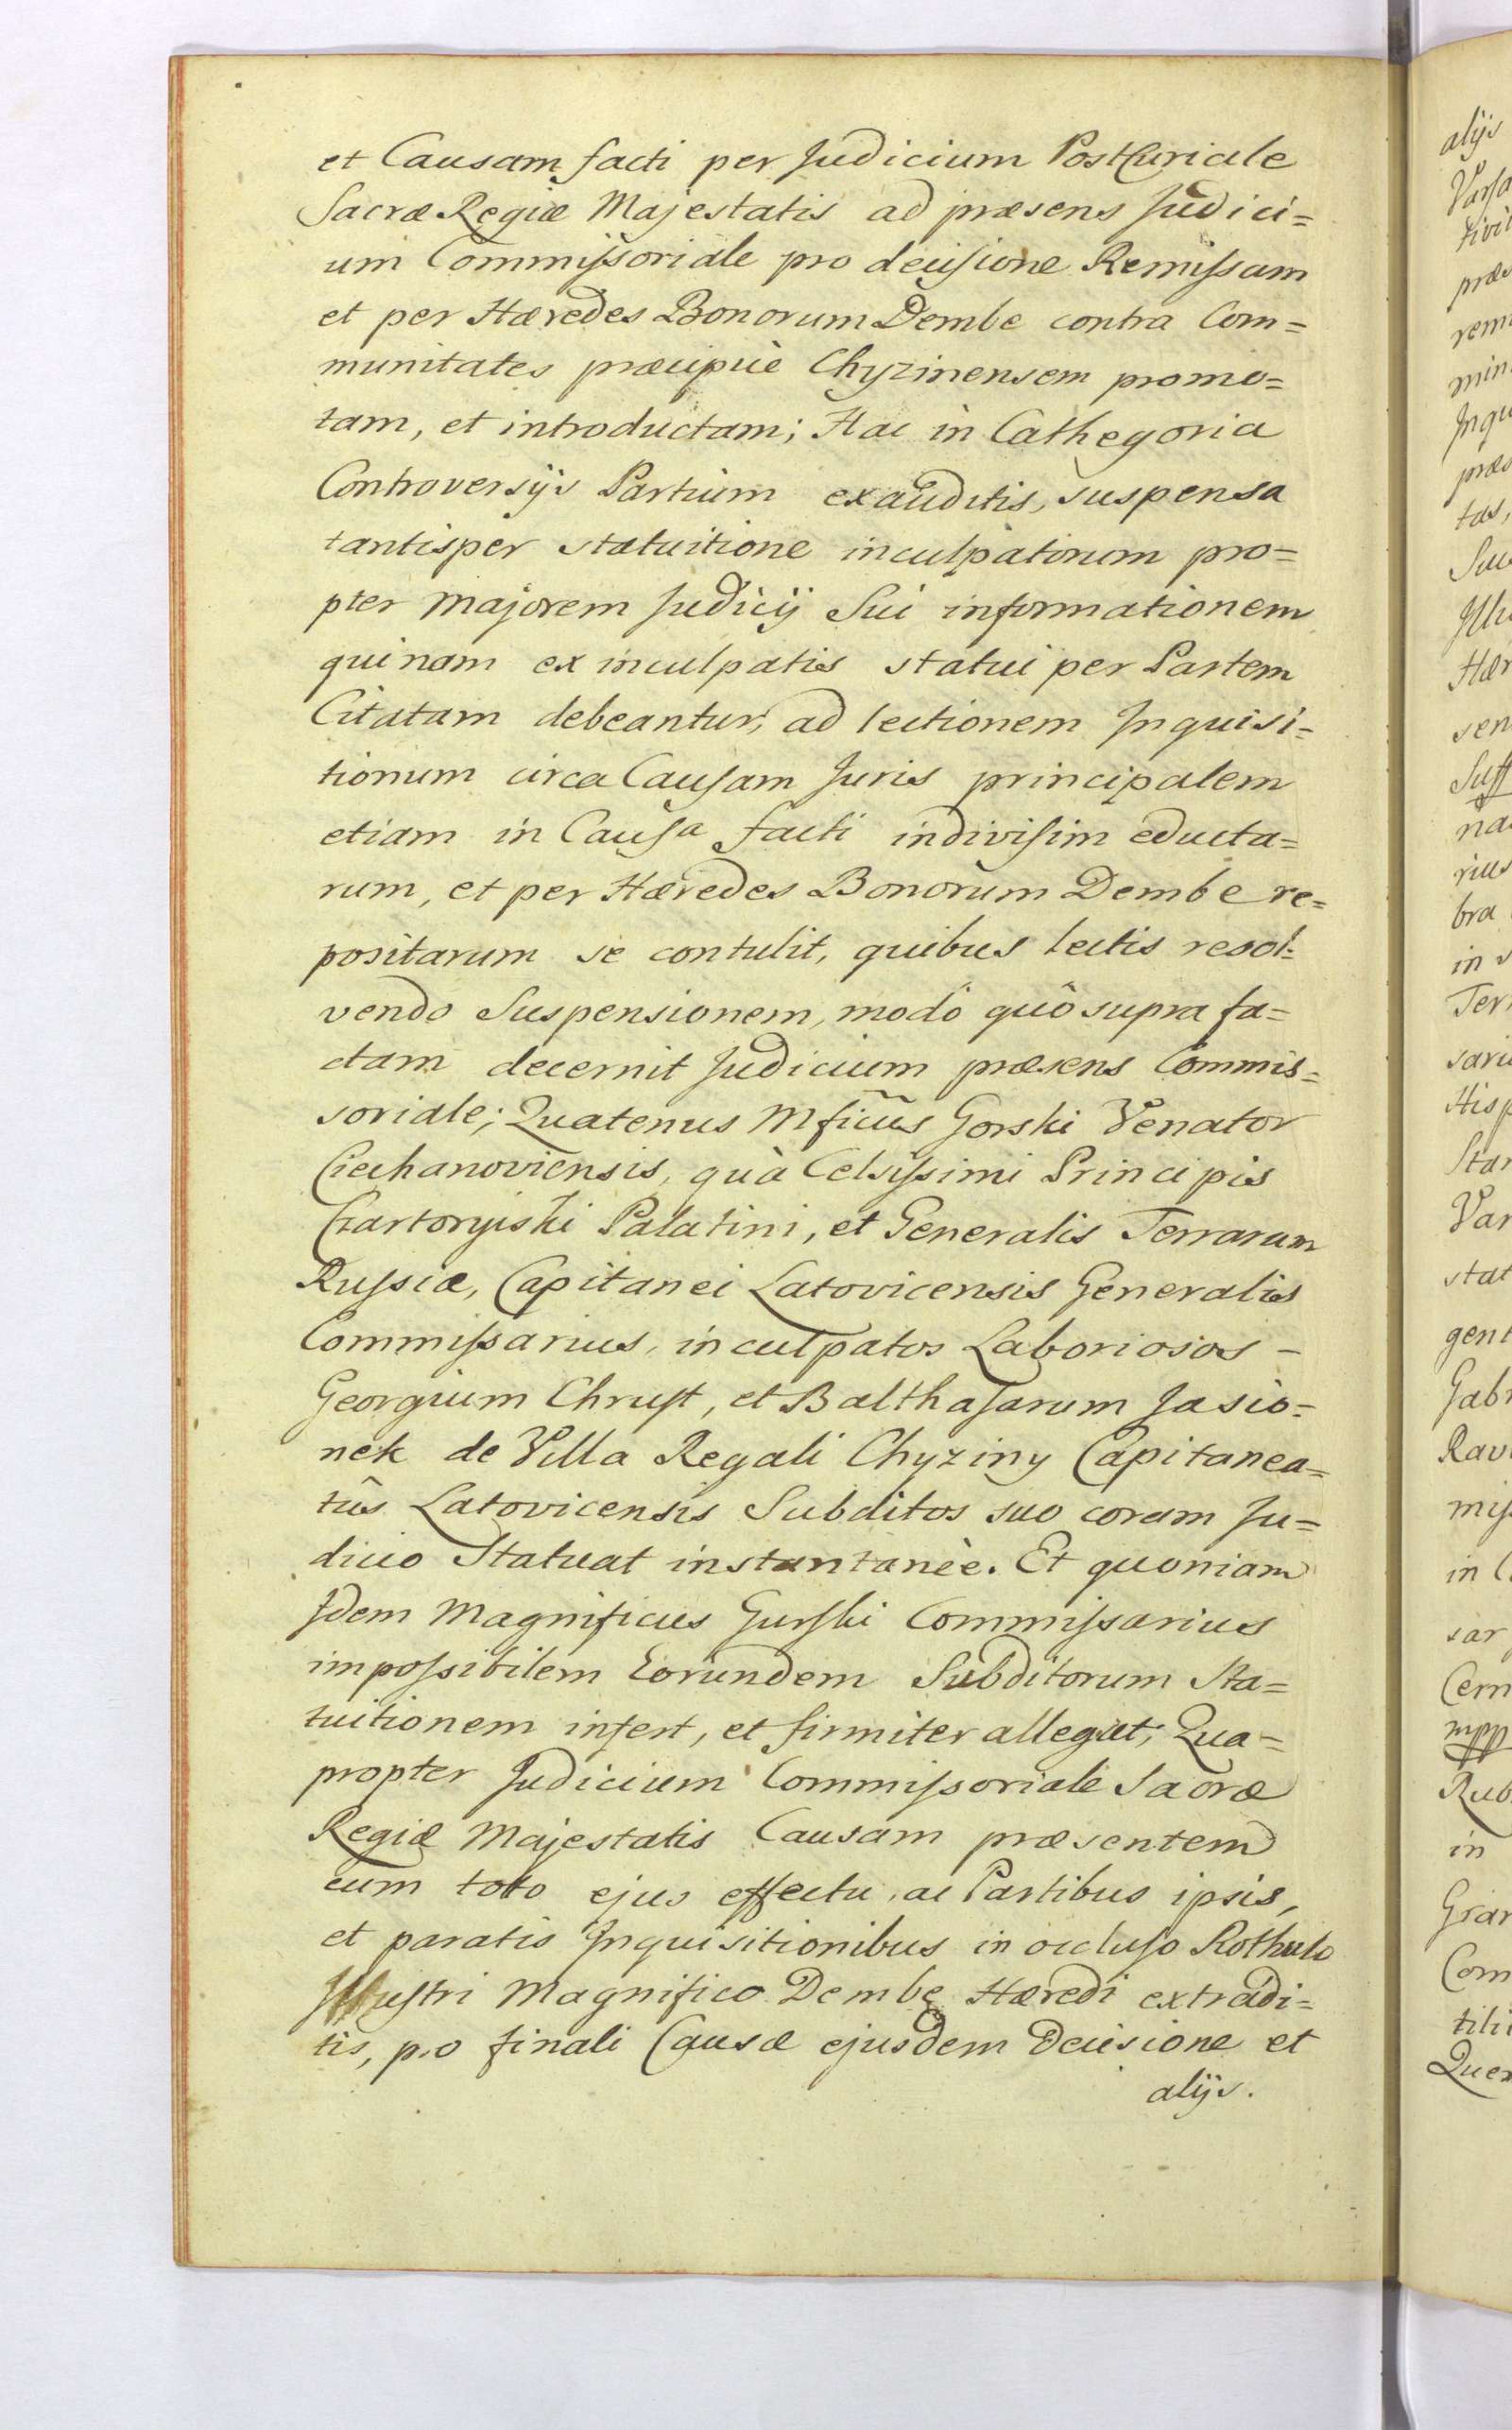 et Causam facti per Judicium PostCuriale
Sacræ Regiæ Majestatis ad præsens Judici=
um Commissoriale pro decisione Remissam
et per Hæredes Bonorum Dembe contra Com=
munitates præcipuè Chyzinensem promo=
tam, et introductam; Hac in Cathegoria
Controversijs Partium exauditis, suspensa
tantisper statuitione inculpatorum pro=
pter majorem Judicij Sui informationem
quinam ex inculpatis statui per Partem
Citatam debeantur, ad lectionem Inquisi=
tionum circa Causam Juris principalem
etiam in Causa facti indivisim educta=
rum, et per Hæredes Bonorum Dembe re=
positarum se contulit, quibus lectis resol=
vendo Suspensionem, modô quô supra fa=
ctam decernit Judicium præsens Commis=
soriale; Quatenus Mficus Gorski Venator
Ciechanoviensis, quà Celsissimi Principis
Czartoryiski Palatini, et Generalis Terrarum
Russiæ, Capitanei Latovicensis Generalis
Commissarius, inculpatos Laboriosos –
Georgium Chrust, et Balthasarum Jasio=
nek de Villa Regali Chyziny Capitanea=
tûs Latovicensis Subditos suo coram Ju=
dicio Statuat instantanèe. Et quoniam
Idem Magnificus Gurski Commissarius
impossibilem Eorundem Subditorum Sta=
tuitionem infert, et firmiter allegat; Qua=
propter Judicium Commissoriale Sacræ
Regiæ Majestatis Causam præsentem
cum toto ejus effectu, ac Partibus ipsis,
et paratis Inquisitionibus in occluso Rothulo
Illustri Magnifico Dembe Hæredi extradi=
tis, pro finali Causæ ejusdem Decisione et
alijs.
alijs
præs
in